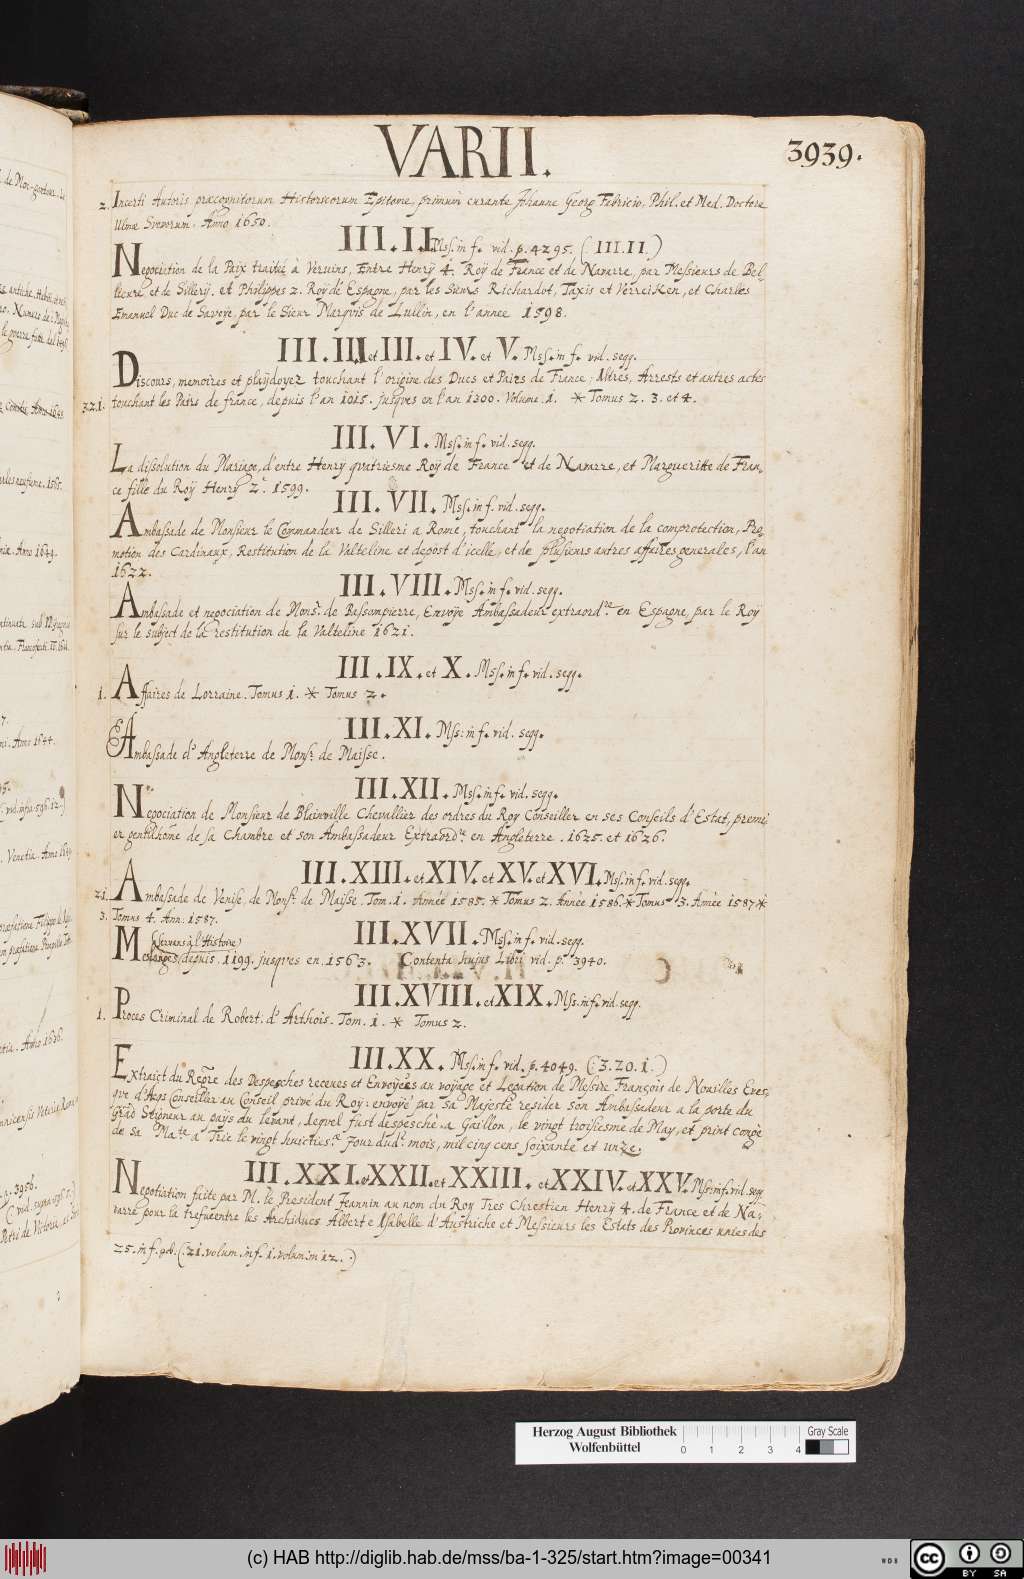 VARII.
3939.
2. Incerti Autoris præcognitorum Historicorum Epitome, primùm curante Johanne Georg Fabricio, Phil. et Med. Doctore
Ulmæ Svevorum. Anno 1650.
III. II. Mss. in f. vid. p. 4295. (III.II.)
Negociation de la Paix traitée à Vervins, Entre Henrÿ 4. Roÿ de France et de Navarre, par Messieurs de Bel-
lieure et de Sillerÿ. et Philippes 2. Roÿ de Espagne, par les Sieurs Richardot, Taxis et Verreiken, et Charles
Emanuel Duc de Savoÿe, par le Sieur Marqvis de Lullin, en l'annee 1598.
III. III. et III. et IV. et V. Mss. in f. vid. seqq.
Discours, memoires et plaÿdoyez touchant l'origine des Ducs et Pairs de France; Altres, Arrests et autres actes
3.2.1. touchant les Pairs de france, depuis l'an 1015. jusqves en l'an 1300. Volume. 1. * Tomus 2. 3. et 4.
III. VI. Mss. in f. vid. seqq.
La dissolution du Mariage, d'entre Henry qvatriesme Roÿ de France et de Navarre, et Margueritte de Fran-
ce fille du Roÿ Henrÿ 2. 1599.
III. VII. Mss. in f. vid. seqq.
Ambassade de Monsieur le Commandeur de Silleri a Rome, touchant la negotiation de la comprotection, Pro-
motion des Cardinaux, Restitution de la Valteline et depost d'icelle, et de plusieurs autres affaires generales, l'an
1622.
III. VIII. Mss. in f. vid. seqq.
Ambassade et negociation de Monsr. de Bassompierre, Envoÿe Ambassadeur extraordre en Espagne, par le Roy
sur le subject de la restitution de la Valteline 1621.
III. IX. et X. Mss. in f. vid. seqq.
1. Affaires de Lorraine. Tomus 1. * Tomus 2.
III. XI. Mss. in f. vid. seqq.
Ambassade d'Angleterre de Monsr. de Maisse.
III. XII. Mss. in f. vid. seqq.
Negociation de Monsieur de Blainville Chevallier des ordres du Roy Conseiller en ses Conseils d'Estat, premi-
er gentilhome de sa Chambre et son Ambassadeur Extraordre en Angleterre. 1625. et 1626.
III. XIII. et XIV. et XV. et XVI. Mss. in f. vid. seqq.
2.1. Ambassade de Venise, de Monsr. de Maisse. Tom. 1. Année 1585. * Tomus 2. Année 1586. * Tomus 3. Année 1587 *
3. Tomus 4. Ann. 1587.
III. XVII. Mss. in f. vid. seqq.
(servans à l'Histoire)
Meslanges depuis 1199. jusqves en 1563. Contenta hujus Libri vid. p. 3940.
III. XVIII. et XIX. Mss. in f. vid. seqq.
1. Proces Criminal de Robert d'Arthois. Tom. 1. * Tomus 2.
III. XX. Mss. in f. vid. p. 4049. (3.20.1.)
Extraict du Regre des Despesches receues et Envoyées au voyage et Legation de Messire François de Noailles Eves-
qve d'Aqs Conseiller au Conseil privé du Roy: envoye par sa Majesté resider son Ambassadeur a la porte du
grād Seigneur au païs du levant, leqvel fust despesché a Gaillon, le vingt troisiesme de May, et print congé
de sa Mate a Trie le vingt huicties. jour dud. mois, mil cinq cens soixante et unze.
III. XXI. et XXII. et XXIII. et XXIV. et XXV. Mss. in f. vid. seqq.
Negotiation faite par M. le President Jeannin au nom du Roy Tres Chrestien Henrÿ 4. de France et de Na-
varre pour la trefue entre les Archiducs Albert e Isabelle d'Austriche et Messieurs les Estats des Provinces unies des
25. in f. geb. (21. volum. in f. 1. volum. in 12.)
Herzog August Bibliothek
Wolfenbüttel
0 1 2 3 4
Gray Scale
(c) HAB http://diglib.hab.de/mss/ba-1-325/start.htm?image=00341
WDB
cc BY SA